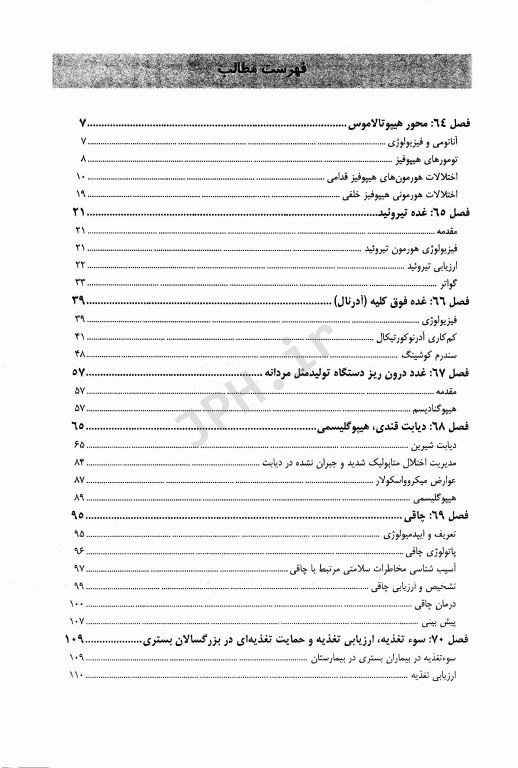 فهرست مطالب
فصل ۶۴: محور هیپوتالاموس ۷
آناتومی و فیزیولوژی ۷
تومورهای هیپوفیز ۸
اختلالات هورمون‌های هیپوفیز قدامی ۱۰
اختلالات هورمونی هیپوفیز خلفی ۱۹
فصل ۶۵: غده تیروئید ۲۱
مقدمه ۲۱
فیزیولوژی هورمون تیروئید ۲۱
ارزیابی تیروئید ۲۲
گواتر ۳۳
فصل ۶۶: غده فوق کلیه (آدرنال) ۳۹
فیزیولوژی ۳۹
کم‌کاری آدرنوکورتیکال ۴۱
سندرم کوشینگ ۴۸
فصل ۶۷: غدد درون ریز دستگاه تولیدمثل مردانه ۵۷
مقدمه ۵۷
هیپوگنادیسم ۵۷
فصل ۶۸: دیابت قندی، هیپوگلیسمی ۶۵
دیابت شیرین ۶۵
مدیریت اختلال متابولیک شدید و جبران نشده در دیابت ۸۴
عوارض میکروواسکولار ۸۷
هیپوگلیسمی ۸۹
فصل ۶۹: چاقی ۹۵
تعریف و اپیدمیولوژی ۹۵
پاتولوژی چاقی ۹۶
آسیب شناسی مخاطرات سلامتی مرتبط با چاقی ۹۷
تشخیص و ارزیابی چاقی ۹۹
درمان چاقی ۱۰۰
پیش بینی ۱۰۷
فصل ۷۰: سوء تغذیه، ارزیابی تغذیه و حمایت تغذیه‌ای در بزرگسالان بستری ۱۰۹
سوءتغذیه در بیماران بستری در بیمارستان ۱۰۹
ارزیابی تغذیه ۱۱۰
JPH.ir